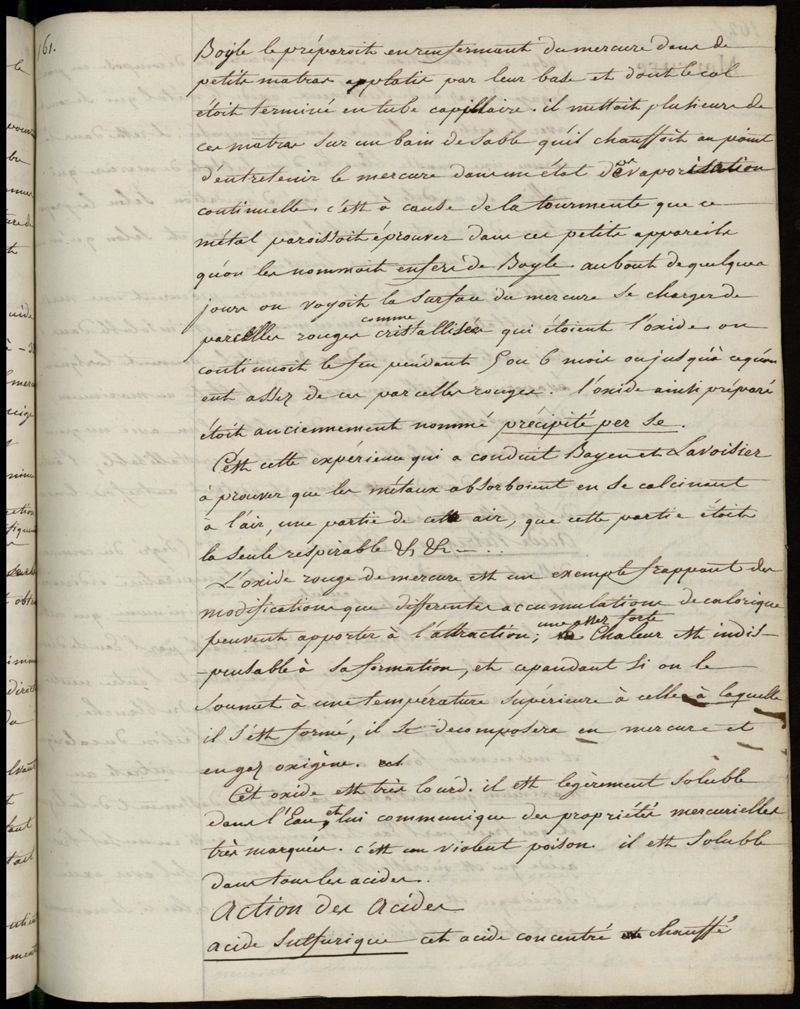 161.
Boyle le préparoit en renfermant du mercure dans de
petits matras applatis par leur base et dont le col
étoit terminé en tube capillaire. il mettoit plusieurs de
ces matras sur un bain de sable qu'il chauffoit au point
d'entretenir le mercure dans un état d'évaporisation
continuelle. c'est à cause de la tourmente que ce
métal paroissoit éprouver dans ces petits appareils
qu'on les nommoit enfers de Boyle. au bout de quelques
jours on voyoit la surface du mercure se charger de
comme
parcelles rouges cristallisées qui étoient l'oxide on
continuoit le feu pendant 5 ou 6 mois ou jusqu'à ce qu'on
eut assez de ces parcelles rouges. l'oxide ainsi préparé
étoit anciennement nommé précipité per se.
C'est cette expérience qui a conduit Bayen et Lavoisier
à prouver que les métaux absorboient en se calcinant
à l'air, une partie de cet air, que cette partie étoit
la seule respirable &c &c — ..
L'oxide rouge de mercure est un exemple frappant des
modifications que differentes accumulations de calorique
une assez forte
peuvent apporter à l'attraction; Chaleur est indis-
-pensable à sa formation, et cependant si on le
soumet à une température supérieure à celle à laquelle
il s'est formé, il se decomposera en mercure et
en gaz oxigène.
Cet oxide est très lourd. il est legèrement soluble
dans l'Eau et lui communique des propriétés mercurielles
très marquées. c'est un violent poison. il est soluble
dans tous les acides.
Action des Acides
acide sulfurique cet acide concentré et chauffé